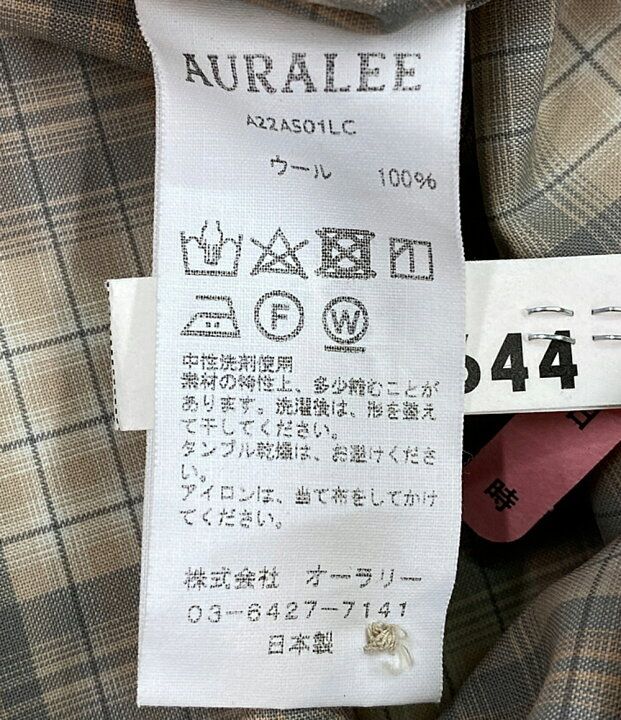 AURALEE
A22AS01LC
ウール 100%
F W
中性洗剤使用
素材の特性上、多少縮むことが
あります。洗濯後は、形を整え
て干してください。
タンブル乾燥は、お避けくださ
い。
アイロンは、当て布をしてかけ
てください。
株式会社 オーラリー
03-6427-7141
日本製
644
時